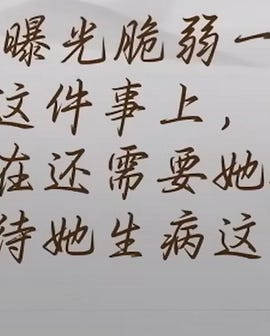 曝光脆弱一
这件事上，
在还需要她
待她生病这